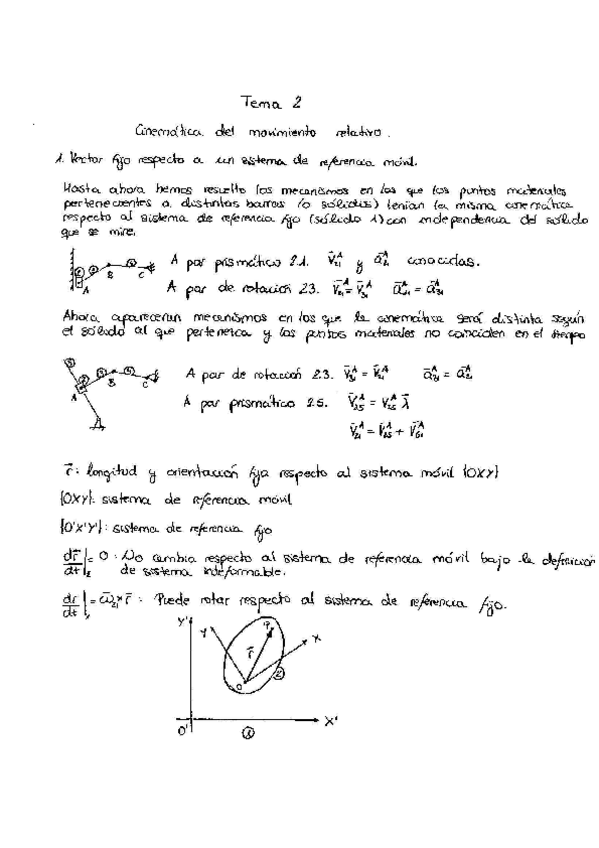 Tema 2
Cinemática del movimiento relativo.
1. Vector fijo respecto a un sistema de referencia móvil.
Hasta ahora hemos resuelto los mecanismos en los que los puntos materiales
pertenecientes a distintas barras (o sólidos) tenían la misma cinemática
respecto al sistema de referencia fijo (sólido 1) con independencia del sólido
que se mire.
A par prismático 2.1. V₂₁ᴬ y a₂₁ᴬ conocidas.
A par de rotación 23. V₂₁ᴬ = V₃₁ᴬ a₂₁ᴬ = a₃₁ᴬ
A B C
Ahora aparecerán mecanismos en los que la cinemática será distinta según
el sólido al que pertenezca y los puntos materiales no coinciden en el tiempo
A par de rotación 2.3. V₃₁ᴬ = V₂₁ᴬ a₃₁ᴬ = a₂₁ᴬ
A par prismático 2.5. V₂₅ᴬ = V₂₅ᴬ λ
V₂₁ᴬ = V₂₅ᴬ + V₅₁ᴬ
A B C
r: longitud y orientación fija respecto al sistema móvil {OXY}
{OXY}: sistema de referencia móvil
{O'X'Y'}: sistema de referencia fijo
dr/dt|₂ = 0 : No cambia respecto al sistema de referencia móvil bajo la definición
de sistema indeformable.
dr/dt|₁ = ω₂₁ × r : Puede rotar respecto al sistema de referencia fijo.
Y' Y P X
r
O 2
O' 1 X'